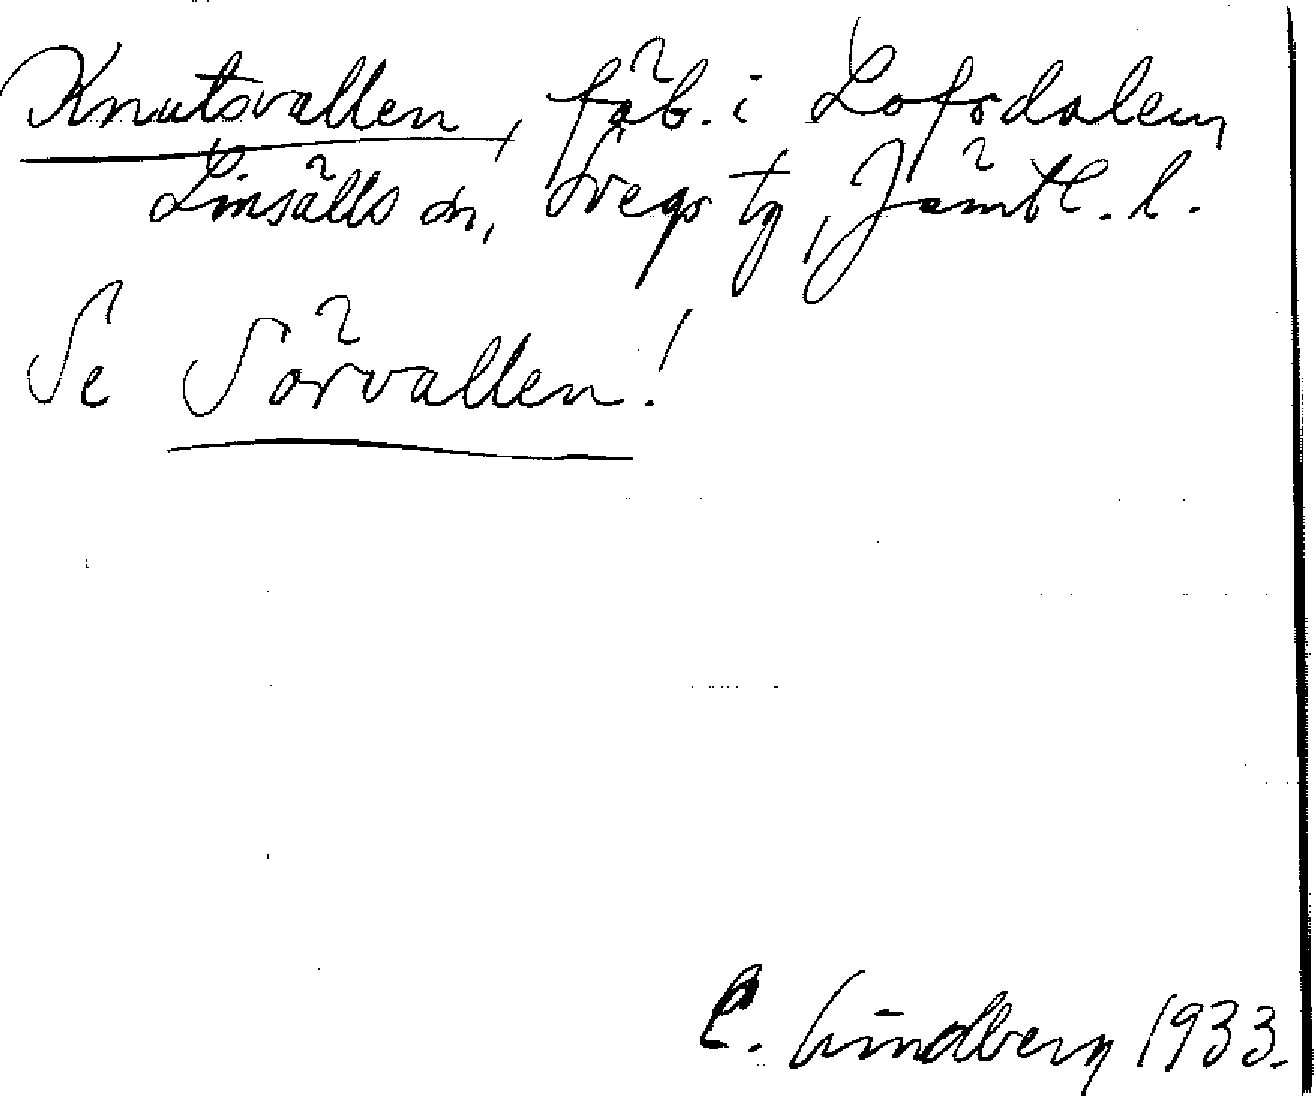 Knutsvallen, fäb. i Lofsdalen,
Linsälls sn, Svegs tg, Jämtl. l.
Se Sörvallen!
C. Lindberg 1933.